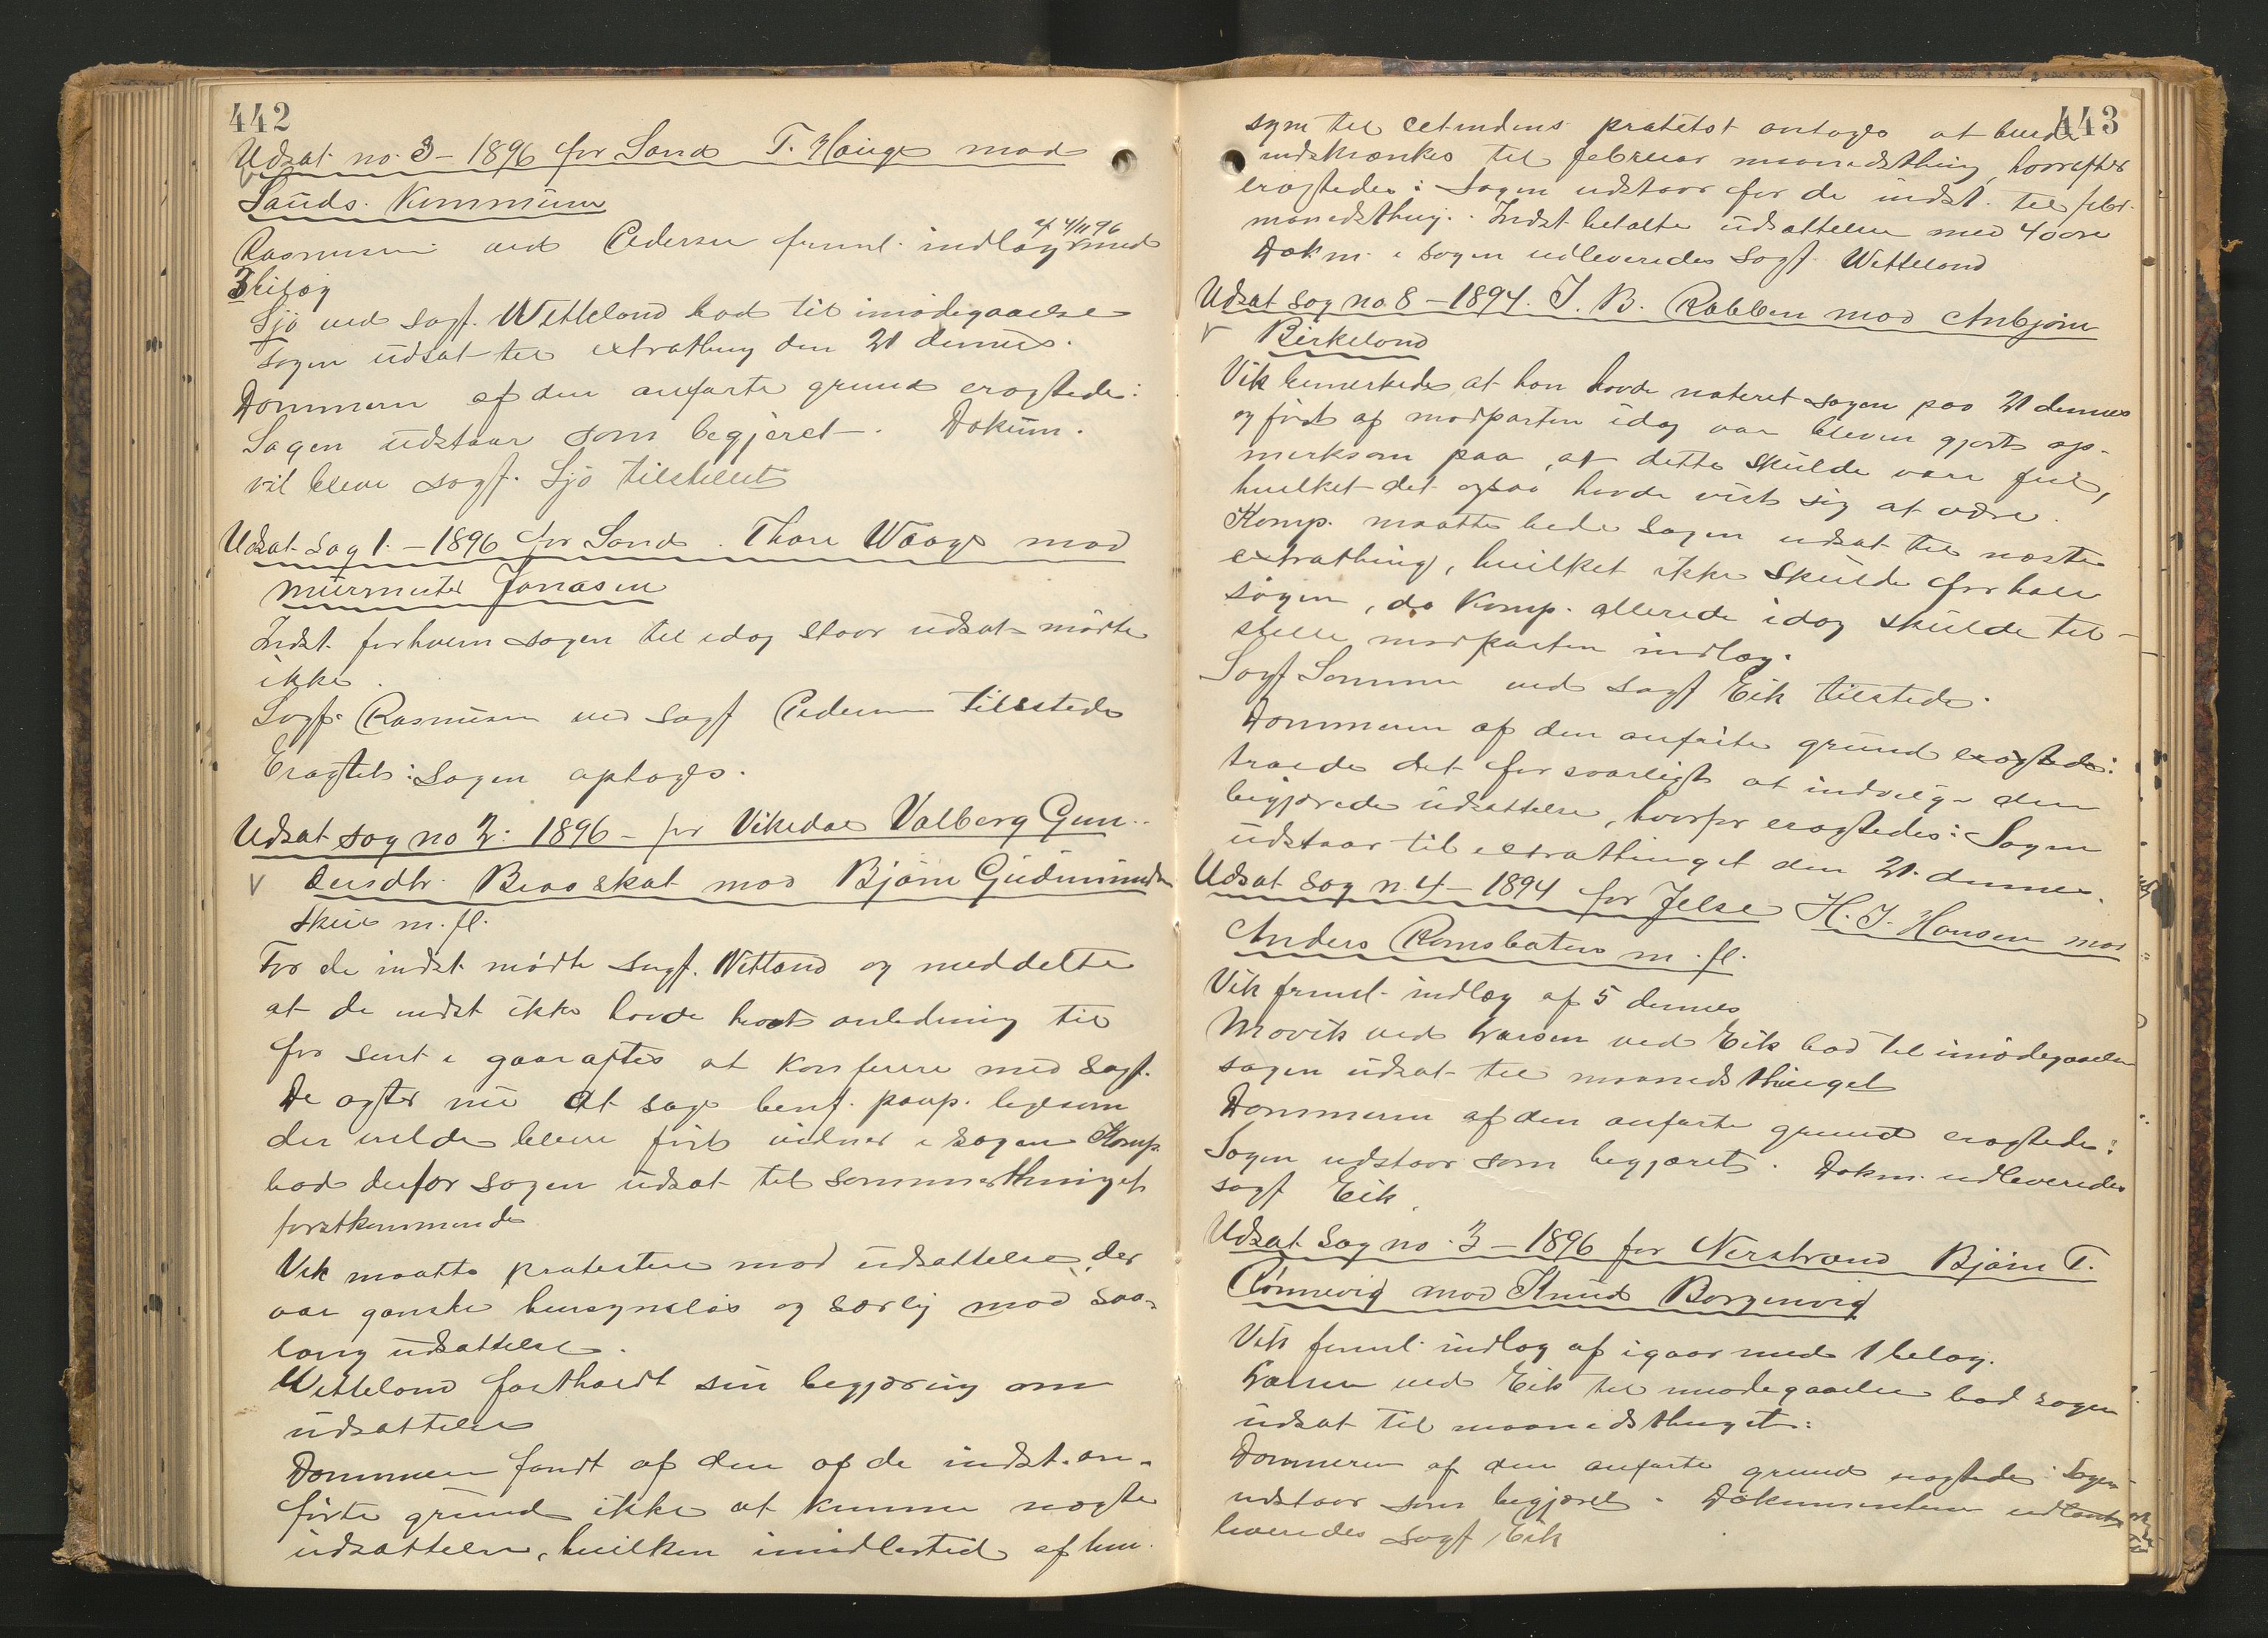 442
Udsat no. 3 - 1896 for Sand T. Hauge mod
Sands. Kommune
Rasmusen ved Pedersen freml. indlæg af 4/11 96 med
3 bilag
Sjø ved sagf. Wetteland bad til imødegaaelse
sagen udsat til extrathing den 21 dennes.
Dommeren af den anførte grund eragtede:
Sagen udstaar som begjæret. Dokum.
vil blive sagf. Sjø tilstillet
Udsat sag 1. - 1896 for Sand. Thore Waage mod
murmester Jonasen
Indst. forhvem sagen til idag staar udsat mødte
ikke.
Sagf. Rasmusen ved sagf Pedersen tilstede
Eragtet: Sagen optoges.
Udsat sag no 2: 1896 - for Vikedal Valborg Gun-
dersdtr. Braaskat mod Bjørn Gudmundsen
Skeie m. fl.
For de indst. mødte sagf. Wetland og meddelte
at de indst ikke havde havt anledning til
før sent i gaaraftes at konferere med sagf.
De agter nu at søge benf. paup. ligesom
der vilde blive ført vidner i sagen Komp.
bad derfor sagen udsat til sommerthinget
førstkommende
Vik maatte protestere mod udsættelse, der
var ganske hensynsløs og særlig mod saa-
lang udsættelse.
Wetteland fastholdt sin begjæring om
udsættelse
Dommeren fandt af den af de indst. an-
førte grund ikke at kunne nægte
udsættelse, hvilken imidlertid af hen-
443
syn til citindens protest antages at burde
indskrænkes til februar maanedsthing, hvorefter
eragtedes: Sagen udstaar for de indst. til febr.
maanedsthing. Indst. betalte udsættelsen med 40 øre
Dokm. i sagen udleveredes sagf. Wetteland
Udsat sag no 8 - 1894. J. B. Rabben mod Anbjørn
Birkeland
Vik bemerkede, at han havde noteret sagen paa 21 dennes
og først af modparten idag var bleven gjort op-
merksom paa, at dette skulde være feil,
hvilket det ogsaa havde vist sig at være.
Komp. maatte bede sagen udsat til næste
extrathing, hvilket ikke skulde forhale
sagen, da Komp. allerede idag skulde til-
stille modparten indlæg.
Sagf Sømme ved sagf Eik tilstede.
Dommeren af den anførte grund eragtede:
troede det forsvarligt at indvilge den
begjærede udsættelse, hvorfor eragtedes: Sagen
udstaar til extrathinget den 21. dennes.
Udsat sag n. 4 - 1894 for Jelse H. J. Hansen mod
Anders Ramsbaters m. fl.
Vik freml. indlæg af 5 dennes
Movik ved Larsen ved Eik bad til imødegaaelse
sagen udsat til maanedsthinget
Dommeren af den anførte grund eragtede:
Sagen udstaar som begjæret. Dokm. udleveredes
sagf Eik.
Udsat sag no. 3 - 1896 for Nerstrand Bjørn T.
Rønnevig mod Knud Borgenvig
Vik freml. indlæg af igaar med 1 belæg.
Larsen ved Eik til imødegaaelse bad sagen
udsat til maanedsthinget:
Dommeren af den anførte grund eragtede: Sagen
udstaar som begjæret. Dokumenterne ud
leveredes sagf Eik